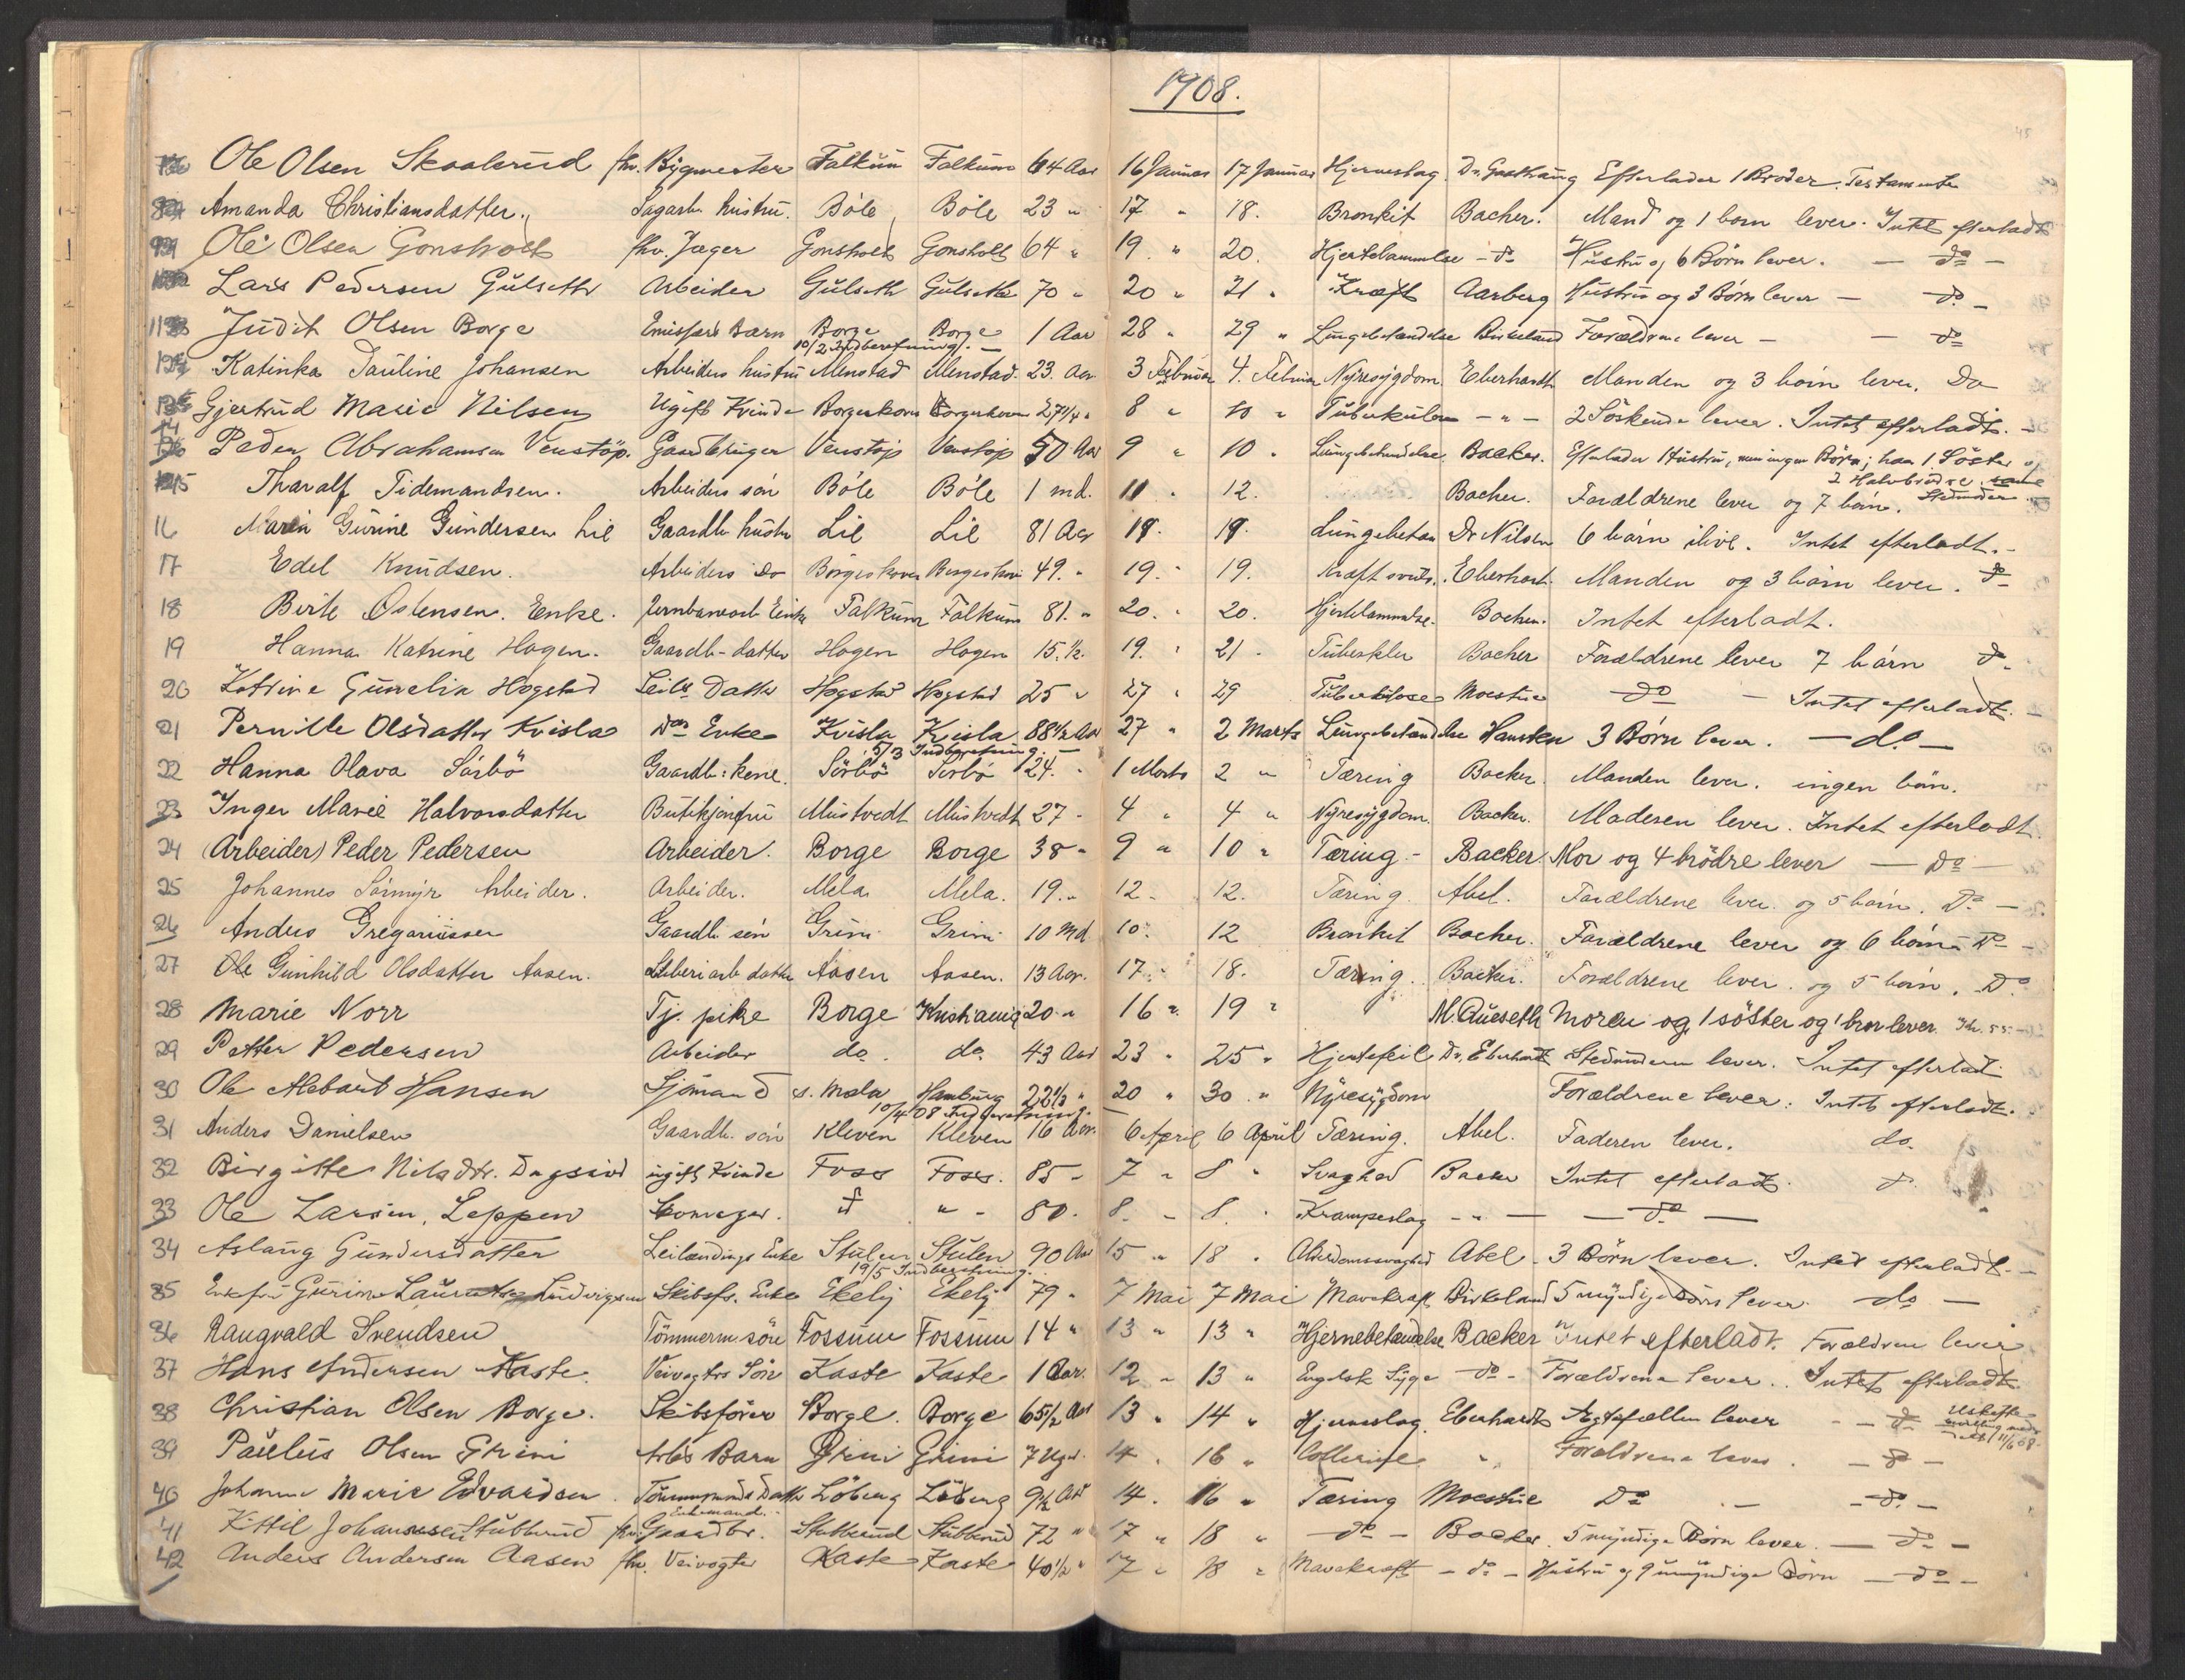 1908.
Ole Olsen Skaalerud fhv. Bygmester Falkum Falkum 64 Aar 16 Januar 17 Januar Hjerneslag. Dr. Gaathaug Efterlader 1 Broder. Testamente
Amanda Christiansdatter. Sagarb. hustru. Böle Böle 23 " 17 " 18. Bronkit Backer. Mand og 1 barn lever. Intet efterladt
Ole Olsen Gonsholt fhv. Jæger Gonsholt Gonsholt 64 " 19. " 20. Hjertelammelse - do Hustru og 6 Børn lever. — do —
Lars Pedersen Gulseth Arbeider Gulseth Gulseth 70 " 20 " 21 " Kræft Aarberg Hustru og 3 Børn lever — do —
11 Judit Olsen Borge Emissærs Barn Borge Borge 1 Aar 28 " 29 " Lungebetændelse Birkeland Forældrene lever — — do
10/2 Indberetning. —
12 Katinka Pauline Johansen Arbeiders hustru Menstad Menstad. 23. Aar 3 Februar 4. Februar Nyresygdom. Eberhardt Manden og 3 börn lever. Do
13 Gjertrud Marie Nilsen Ugift Kvinde Borgeskoven Borgeskoven 27 1/4 " 8 " 10 " Tuberkulose - " - 2 Söskende lever. Intet efterladt. —
14 Peder Abrahamsen Venstöp. Gaardbruger Venstöp Venstöp 50 Aar 9 " 10 " Lungebetændelse. Backer. Efterlader Hustru, men ingen Börn; har 1 Söster og
2 Halvbrödre. samt
15 Tharalf Tidemandsen. Arbeiders sön Böle Böle 1 md. 11 " 12. Backer. Forældrene lever og 7 börn. Stedmoder
16 Maren Gurine Gundersen Lie Gaardb. hustru Lie Lie 81 Aar 18. 19. Lungebetæn Dr Nilsen 6 börn ilive. Intet efterladt. -
17 Edel Knudsen. Arbeiders Do Borgeskoven Borgeskov 49. " 19. " 19. Kræftsvuls. Eberhart. Manden og 3 börn lever. do
18 Berte Östensen. Enke. Jernbanearb Enke Falkum Falkum 81. " 20. " 20. Hjertelammelse. Backer. Intet efterladt.
19 Hanna Katrine Hagen. Gaardb-datter Hagen Hagen 15.½. 19. " 21 - Tuberkler Backer Forældrene lever 7 börn do.
20 Katrine Gunelia Hogstad Leil. Datter Hogstad Hogstad 25 " 27 " 29 Tuberkulose Moestue — do — Intet efterladt. —
21 Pernille Olsdatter Kvisla Do Enke Kvisla Kvisla 88½ Aar 27 " 2 Marts Lungebetændelse Hansken 3 Børn lever. — do —
5/3 Indberetning. —
22 Hanna Olava Sörbö Gaardb: kone. Sörbö Sörbö 24. " 1 Marts 2 " Tæring Backer. Manden lever. ingen börn.
23 Inger Marie Halvorsdatter Butikjomfru Mustvedt Mustvedt 27 - 4 " 4 " Nyresygdom. Backer. Moderen lever. Intet efterladt.
24 (Arbeider) Peder Pedersen Arbeider. Borge Borge 38 " 9 " 10 " Tæring - Backer Mor og 4 brödre lever — do —
25 Johannes Sörmyr Arbeider. Arbeider. Mela. Mela. 19. " 12. 12. Tæring. Abel. Forældrene lever. og 5 börn. Do —
26 Anders Gregariussen Gaardb. sön Grini Grini 10 Md 10. 12 Bronkit Backer. Forældrene lever og 6 börn - Do —
27 Ole Gunhild Olsdatter Aasen. datter Aasen Aasen. 13 Aar. 17. " 18. Tæring. Backer. Forældrene lever. og 5 börn. Do.
28 Marie Norr Tj. pike Borge Kristiania 20 " 16 " 19 " M. Aueseth Moren og 1 söster og 1 bror lever.
29 Petter Pedersen Arbeider do. do. 43 Aar 23 " 25 " Hjertefeil Dr. Eberhardt Stedmoderen lever. Intet efterladt.
30 Ole Alebart Hansen Sjömand s. Mæla Hamburg 22 1/3 " 20 " 30 " Nyresygdom Forældrene lever. Intet efterladt.
10/4 08 Indberetning. —
31 Anders Danielsen Gaardb. sön Kleven Kleven 16 Aar. 6 April 6 April Tæring. Abel. Faderen lever. do.
32 Birgitte Nilsdtr. Dagsrud ugift Kvinde Foss Foss. 85 - 7 " 8 " Svaghed Backer Intet efterladt. do.
33 Ole Larsen, Leppen do " - 80. 8. - 8. " Krampeslag - " — — do —
34 Aslaug Gundersdatter Leilændings Enke Stulen Stulen 90 Aar 15 " 18 " Alderdomssvaghed Abel - 3 Børn lever. Intet efterladt. —
19/5 Indberetning.
35 Enkefru Gurine Ludvigsen Skibsf. Enke Ekely Ekely 79 " 7 Mai 7 Mai Mavekræft Birkeland 5 myndige Börn lever. do —
36 Raugvald Svendsen Tömmerm. sön Fossum Fossum 14 " 13 " 13 " Hjernebetændelse Backer Intet efterladt. Forældrene lever
37 Hans Andersen Kaste. Veivogters Sön Kaste Kaste 1 Aar. 12 " 13 " Engelsk Syge - do - Forældrene lever. Intet efterladt.
38 Christian Olsen Borge. Skibsfører Borge. Borge 65½ Aar 13 " 14 " Hjerneslag. Eberhardt Ægtefællen lever - - do Uskifte-
39 Paulus Olsen Grini Arb's Barn Grini Grini 7 Uger. 14 " 16 " Collerine " Forældrene lever. — do — 11/6 08.
40 Johanne Marie Edvardsen Tömmermands Datter Löberg Löberg 9½ Aar 14. 16 " Tæring Moestue Do — — do —
Enkemand.
41 Kittil Johannesen Stubberud fhv. Gaardbr. Stubberud Stubberud 72 " 17 " 18 " — do — Backer. 5 myndige Børn lever. — do —
42 Anders Andersen Aasen fhv. Veivogter Kaste Kaste 40½ " 17 " 18 " Mavekræft - do - Hustru og 9 umyndige Börn — do —